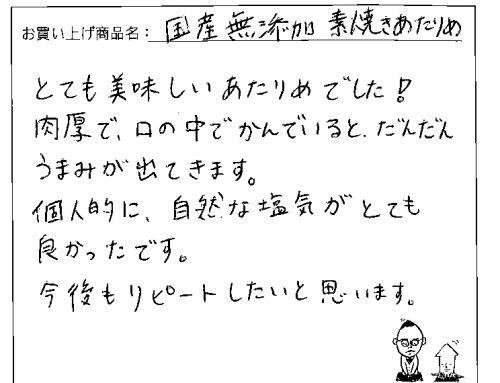 お買い上げ商品名： 国産無添加 素焼きあたりめ
とても美味しいあたりめでした！
肉厚で、口の中でかんでいると、だんだん
うまみが出てきます。
個人的に、自然な塩気がとても
良かったです。
今後もリピートしたいと思います。